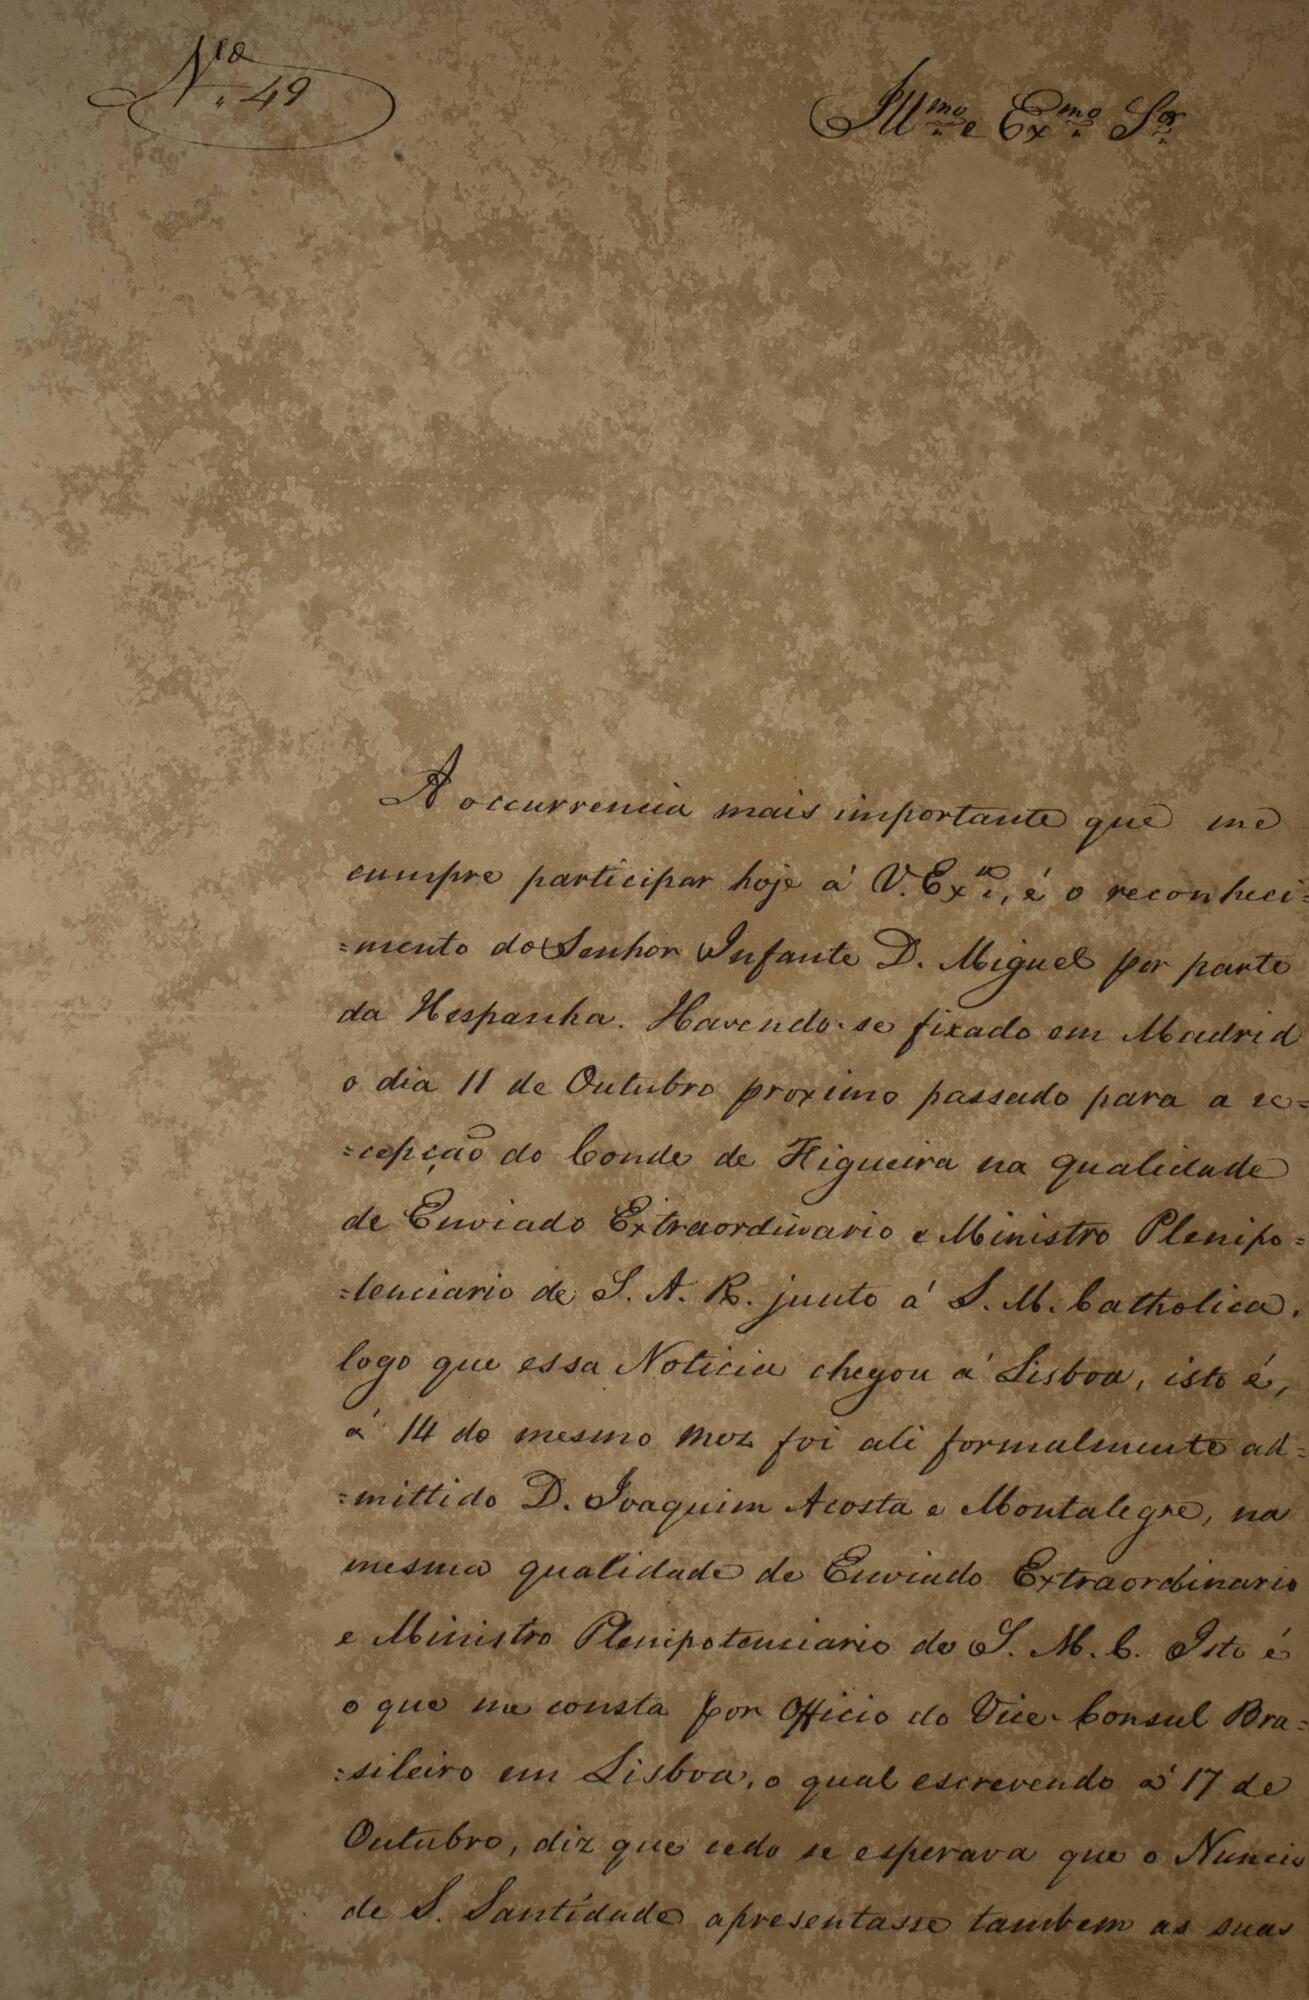 N.º 49
Ill.mo e Ex.mo S.or
A occurrencia mais importante que me
cumpre participar hoje á V. Ex.a, é o reconheci=
=mento do Senhor Infante D. Miguel por parte
da Hespanha. Havendo-se fixado em Madrid
o dia 11 de Outubro proximo passado para a re=
=cepção do Conde de Figueira na qualidade
de Enviado Extraordinario e Ministro Plenipo=
=tenciario de S. A. R. junto á S. M. Catholica,
logo que essa Noticia chegou á Lisboa, isto é,
á 14 do mesmo mez foi ali formalmente ad=
=mittido D. Joaquim Acosta e Montalegre, na
mesma qualidade de Enviado Extraordinario
e Ministro Plenipotenciario de S. M. C. Isto é
o que me consta por Officio do Vice-Consul Bra=
=sileiro em Lisboa, o qual escrevendo á 17 de
Outubro, diz que cedo se esperava que o Nuncio
de S. Santidade apresentasse tambem as suas